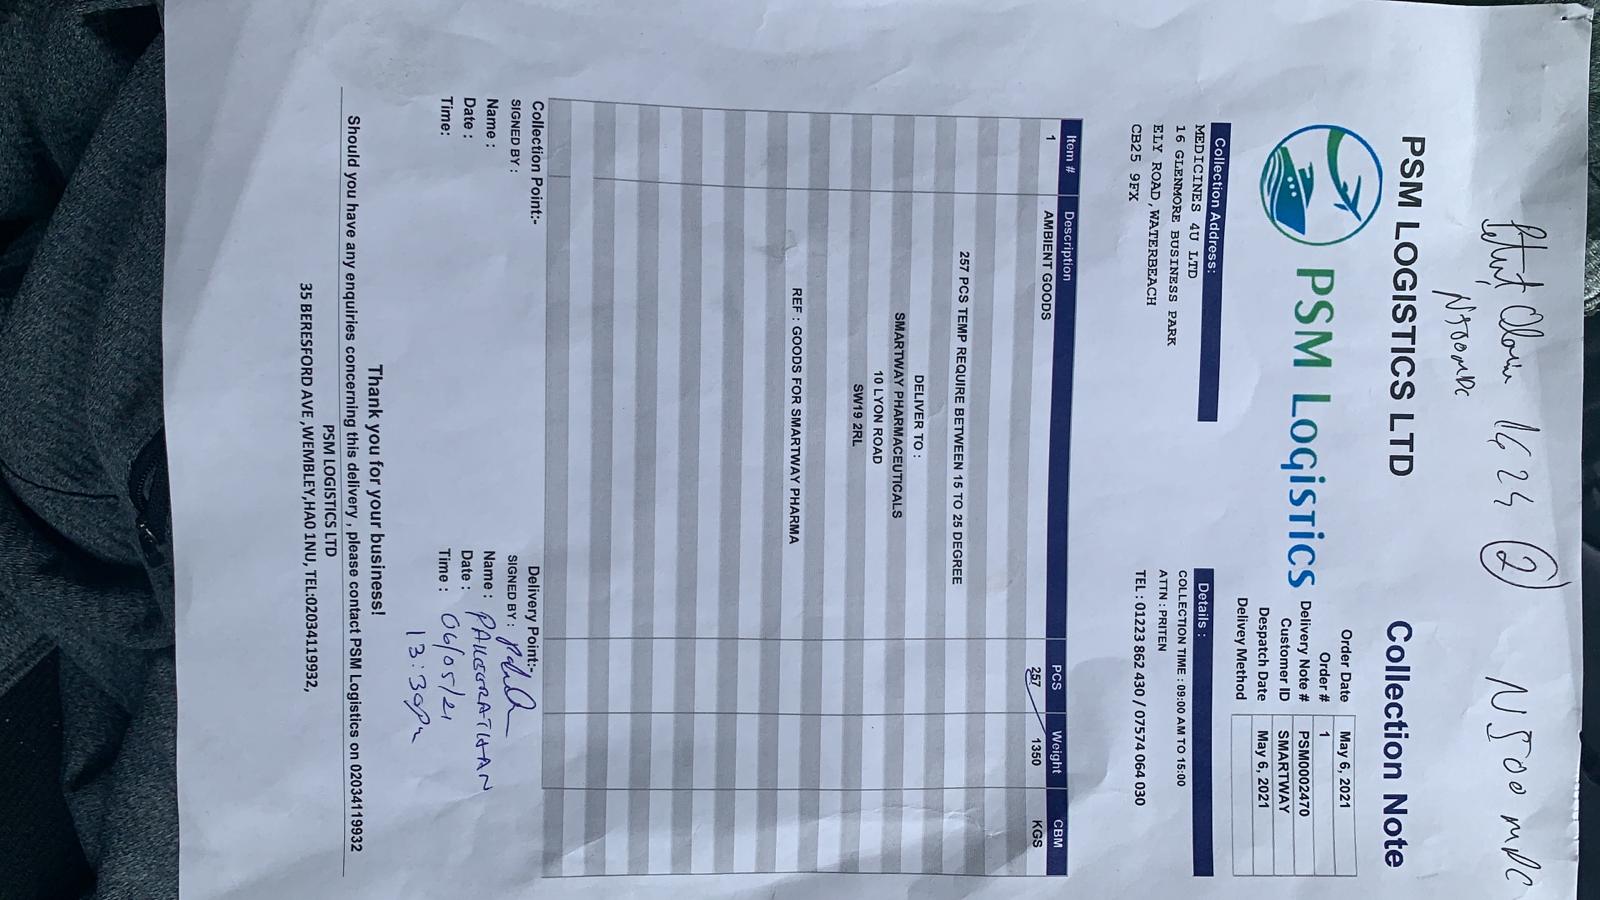 16 24 2 N500 MDC
N500MDC
PSM LOGISTICS LTD
Collection Note
PSM Logistics
Order Date May 6, 2021
Order # 1
Delivery Note # PSM0002470
Customer ID SMARTWAY
Despatch Date May 6, 2021
Delivey Method
Collection Address:
MEDICINES 4U LTD
16 GLENMORE BUSINESS PARK
ELY ROAD,WATERBEACH
CB25 9FX
Details :
COLLECTION TIME : 09:00 AM TO 15:00
ATTN : PRITEN
TEL : 01223 862 430 / 07574 064 030
Item # Description PCS Weight CBM
1 AMBIENT GOODS 257 1350 KGS
257 PCS TEMP REQUIRE BETWEEN 15 TO 25 DEGREE
DELIVER TO :
SMARTWAY PHARMACEUTICALS
10 LYON ROAD
SW19 2RL
REF : GOODS FOR SMARTWAY PHARMA
Collection Point:-
SIGNED BY :
Name :
Date :
Time:
Delivery Point:-
SIGNED BY :
Name : PAKEERATHAN
Date : 06/05/21
Time : 13:30pm
Thank you for your business!
Should you have any enquiries concerning this delivery , please contact PSM Logistics on 02034119932
PSM LOGISTICS LTD
35 BERESFORD AVE ,WEMBLEY,HA0 1NU, TEL:02034119932,